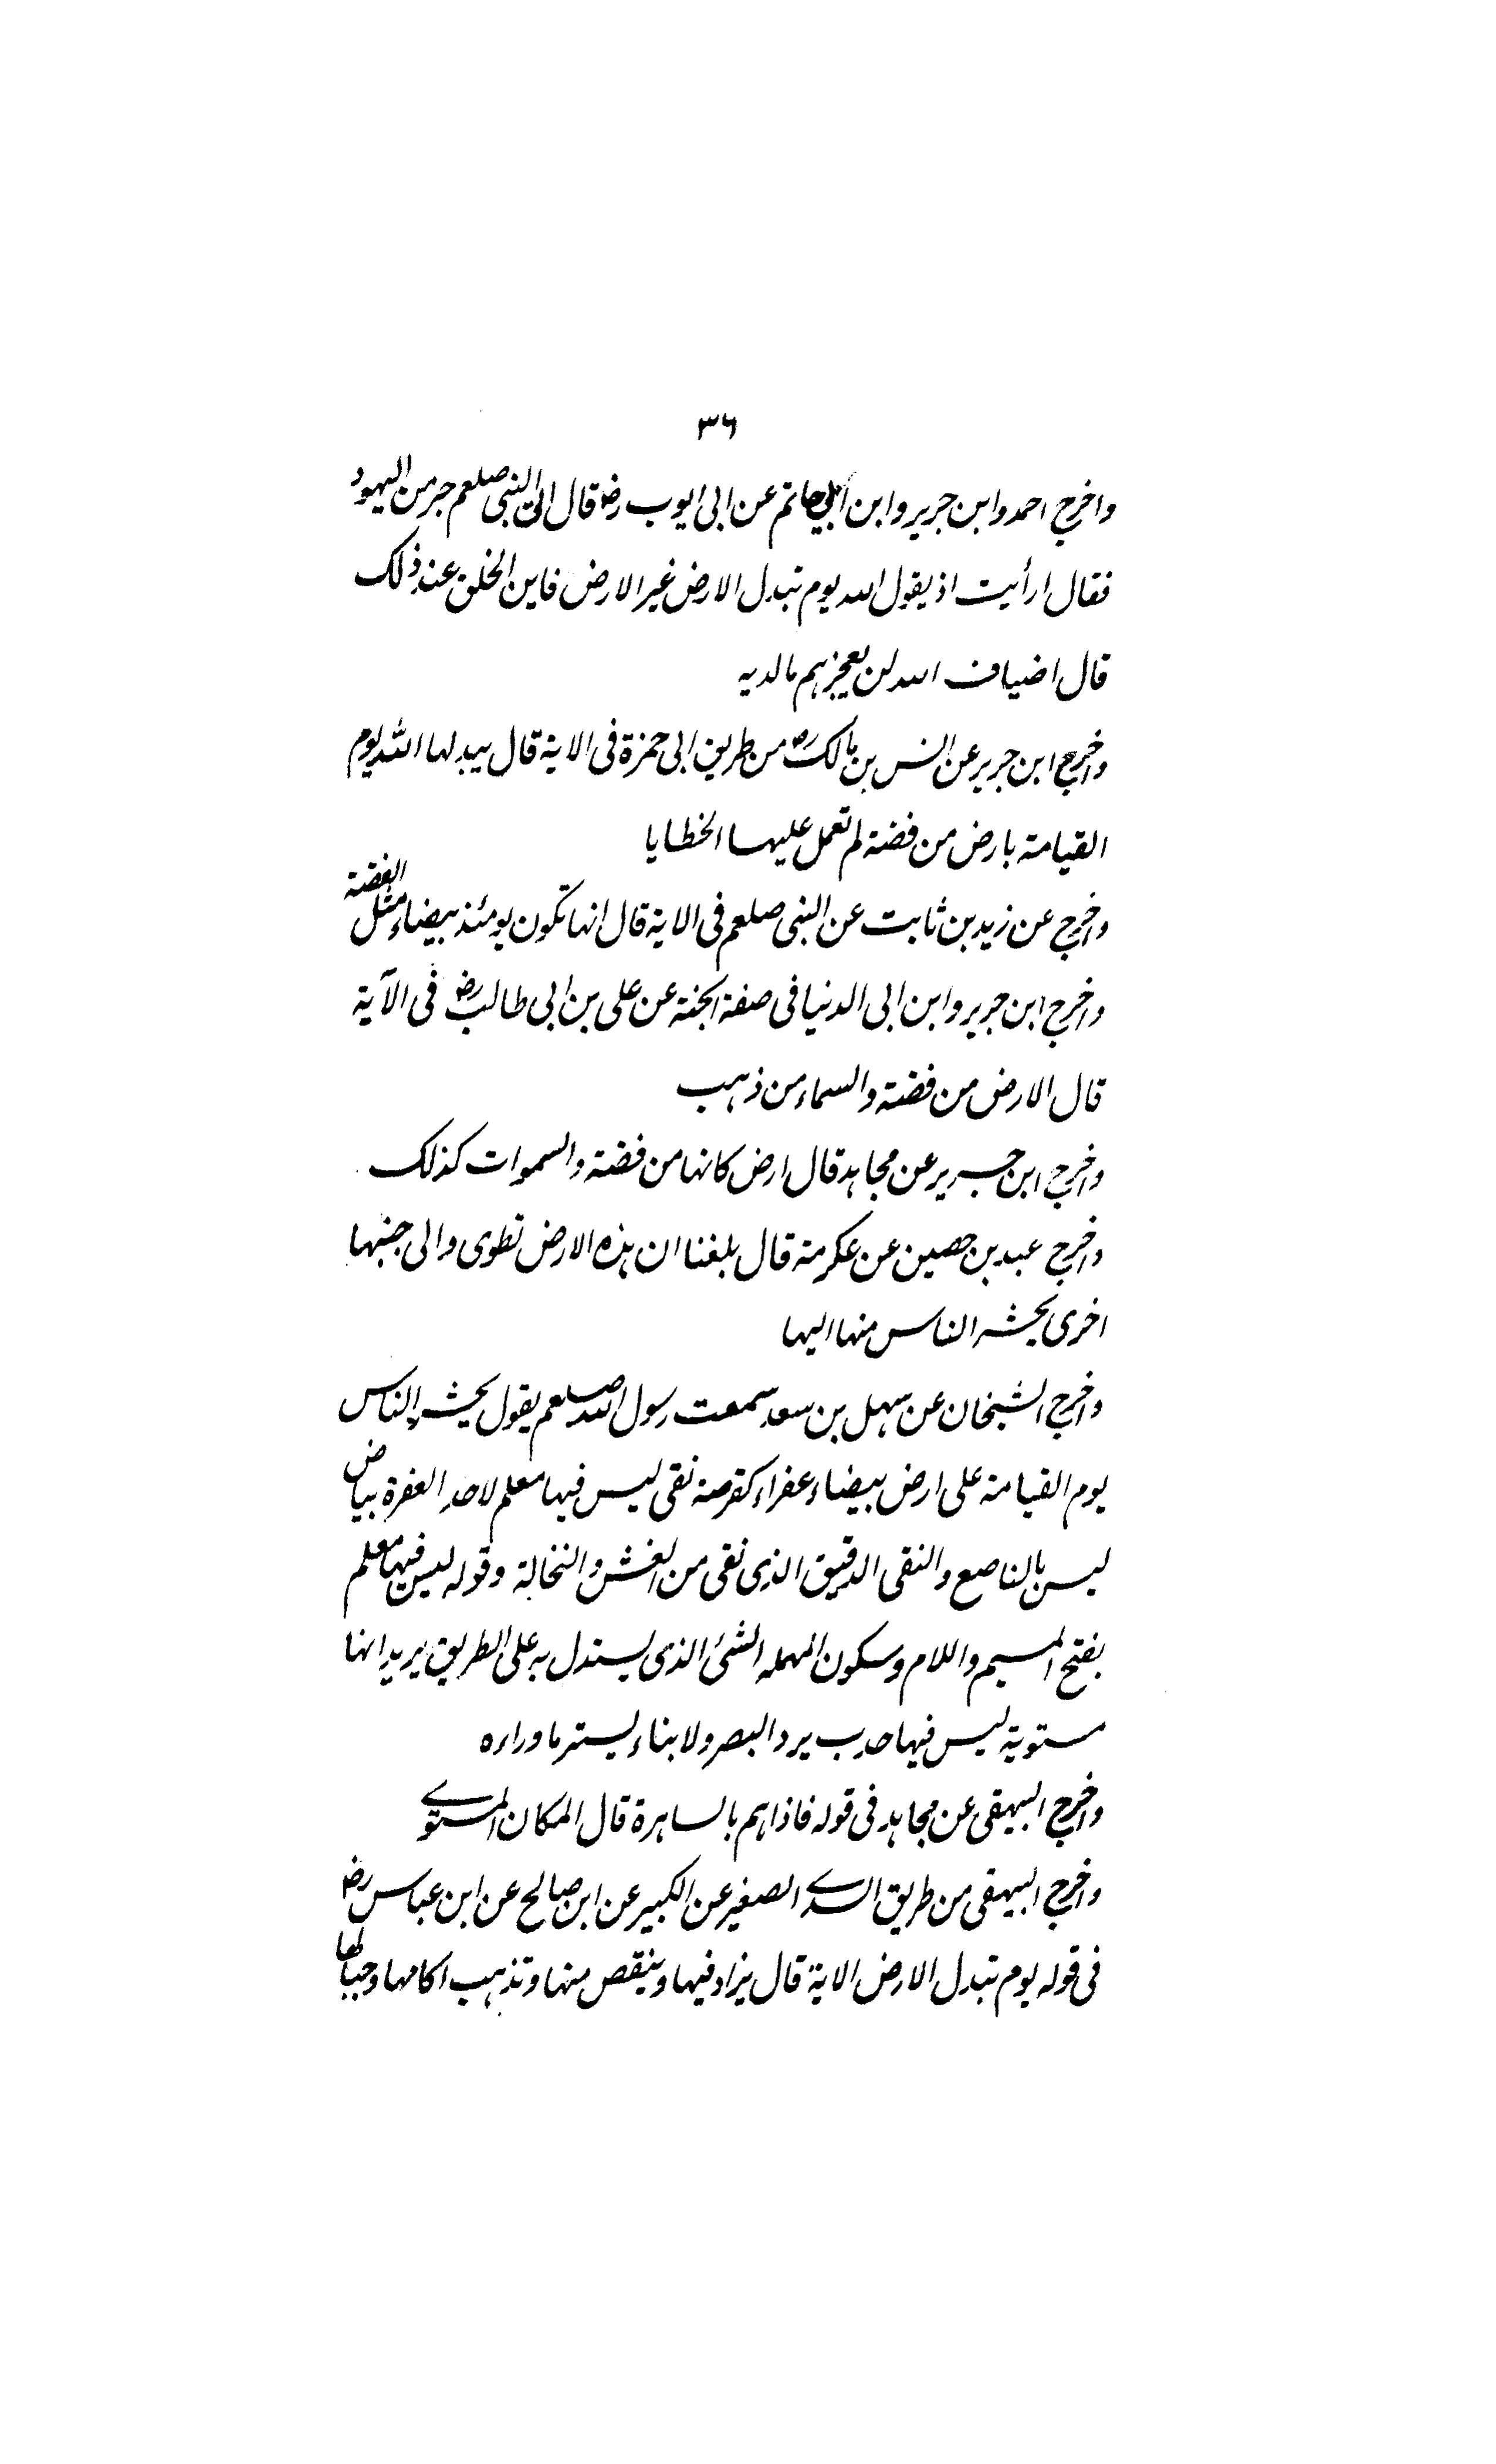 ٣٦
واخرج احمد وابن جرير وابن ابي حاتم عن ابى ايوب رضـ قال اتى النبى صلعم حبر من اليهود
فقال ارأيت اذ يقول الله يوم تبدل الارض غير الارض فاين الخلق عند ذلك
قال اضياف الله لن يعجزهم مالديه
واخرج ابن جرير عن انس بن مالك رضـ من طريق ابى حمزة فى الاية قال يبدلها الله يوم
القيامة بارض من فضة لم تعمل عليها الخطايا
واخرج عن زيد بن ثابت عن النبى صلعم فى الاية قال انها تكون يومئذ بيضاء مثل الفضة
واخرج ابن جرير وابن ابى الدنيا فى صفة الجنة عن على بن ابى طالب رضـ فى الآية
قال الارض من فضة والسماء من ذهب
واخرج ابن جرير عن مجاهد قال ارض كانها من فضة والسموات كذلك
واخرج عبد بن حصين عن عكرمة قال بلغنا ان هذه الارض تطوى والى جنبها
اخرى يحشر الناس منها اليها
واخرج الشيخان عن سهل بن سعد سمعت رسول الله صلعم يقول يحشر الناس
يوم القيامة على ارض بيضاء عفراء كقرصة نقى ليس فيها معلم لاحد العفرة بياض
ليس بالناصع والنقى الدقيق الذى نقى من الغش والنخالة وقوله ليس فيها معلم
بفتح الميم واللام وسكون المهمله الشئ الذى يستدل به على الطريق يريد انها
مستوية ليس فيها حدب يرد البصر ولا بناء يستر ما وراءه
واخرج البيهقى عن مجاهد فى قوله فاذاهم بالساهرة قال المكان المستوى
واخرج البيهقى من طريق السدى الصغير عن الكبير عن ابن صالح عن ابن عباس رضـ
فى قوله يوم تبدل الارض الاية قال يزاد فيها وينقص منها وتذهب اكامها وجبالها